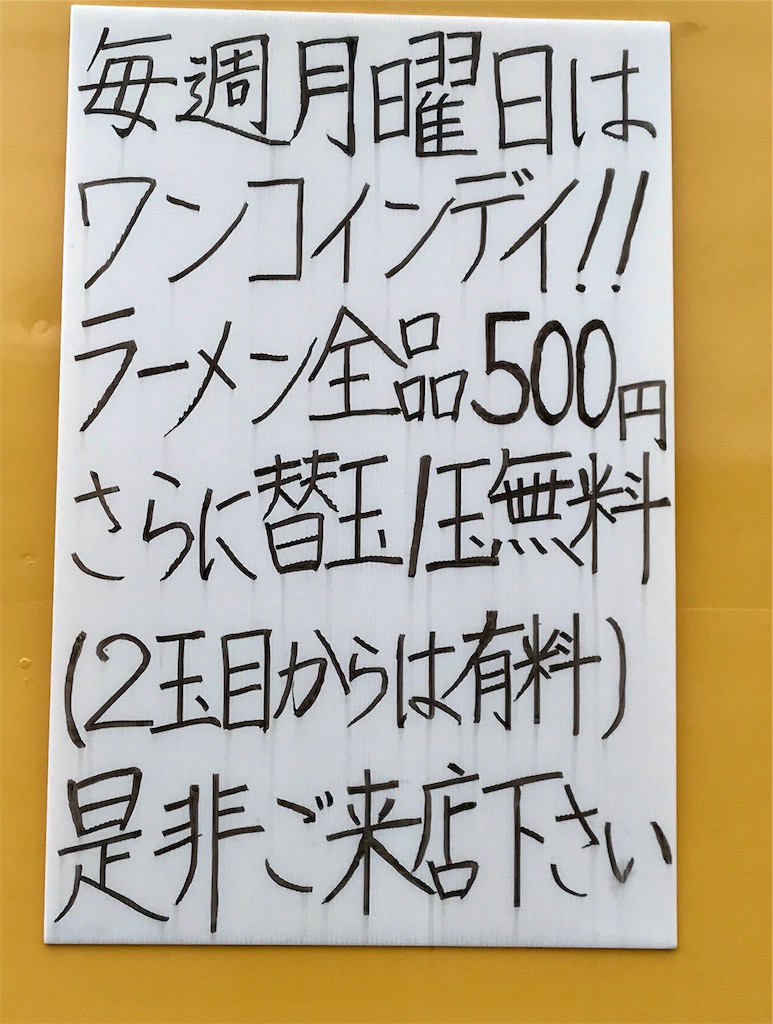 毎週月曜日は
ワンコインデイ!!
ラーメン全品500円
さらに替玉1玉無料
(2玉目からは有料)
是非ご来店下さい